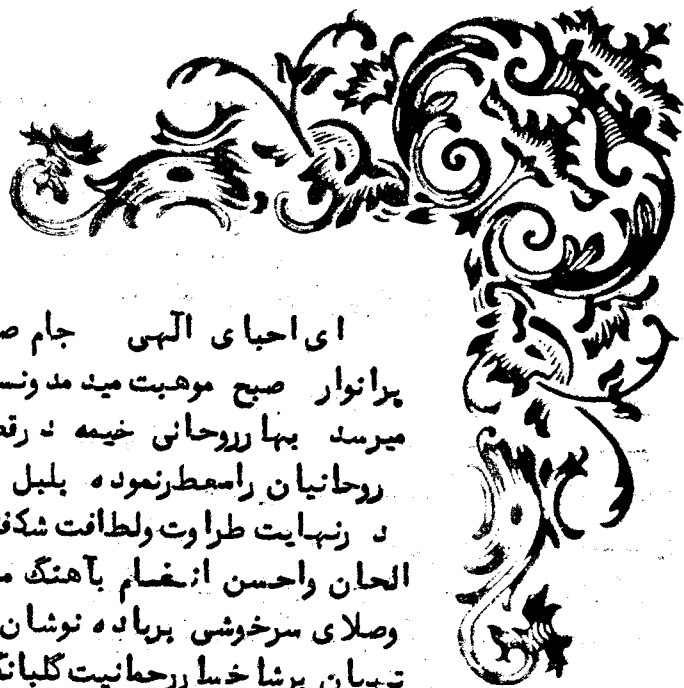 ای احبای الهی جام ص
پرانوار صبح موهبت میدمد ونس
میرسد بهار روحانی خیمه د رق
روحانیان رامعطرنموده بلبل
د رنهایت طراوت ولطافت شکف
الحان واحسن انغام بآهنگ م
وصلای سرخوشی برباده نوشان
برشاخسار رحمانیت گلبانگ